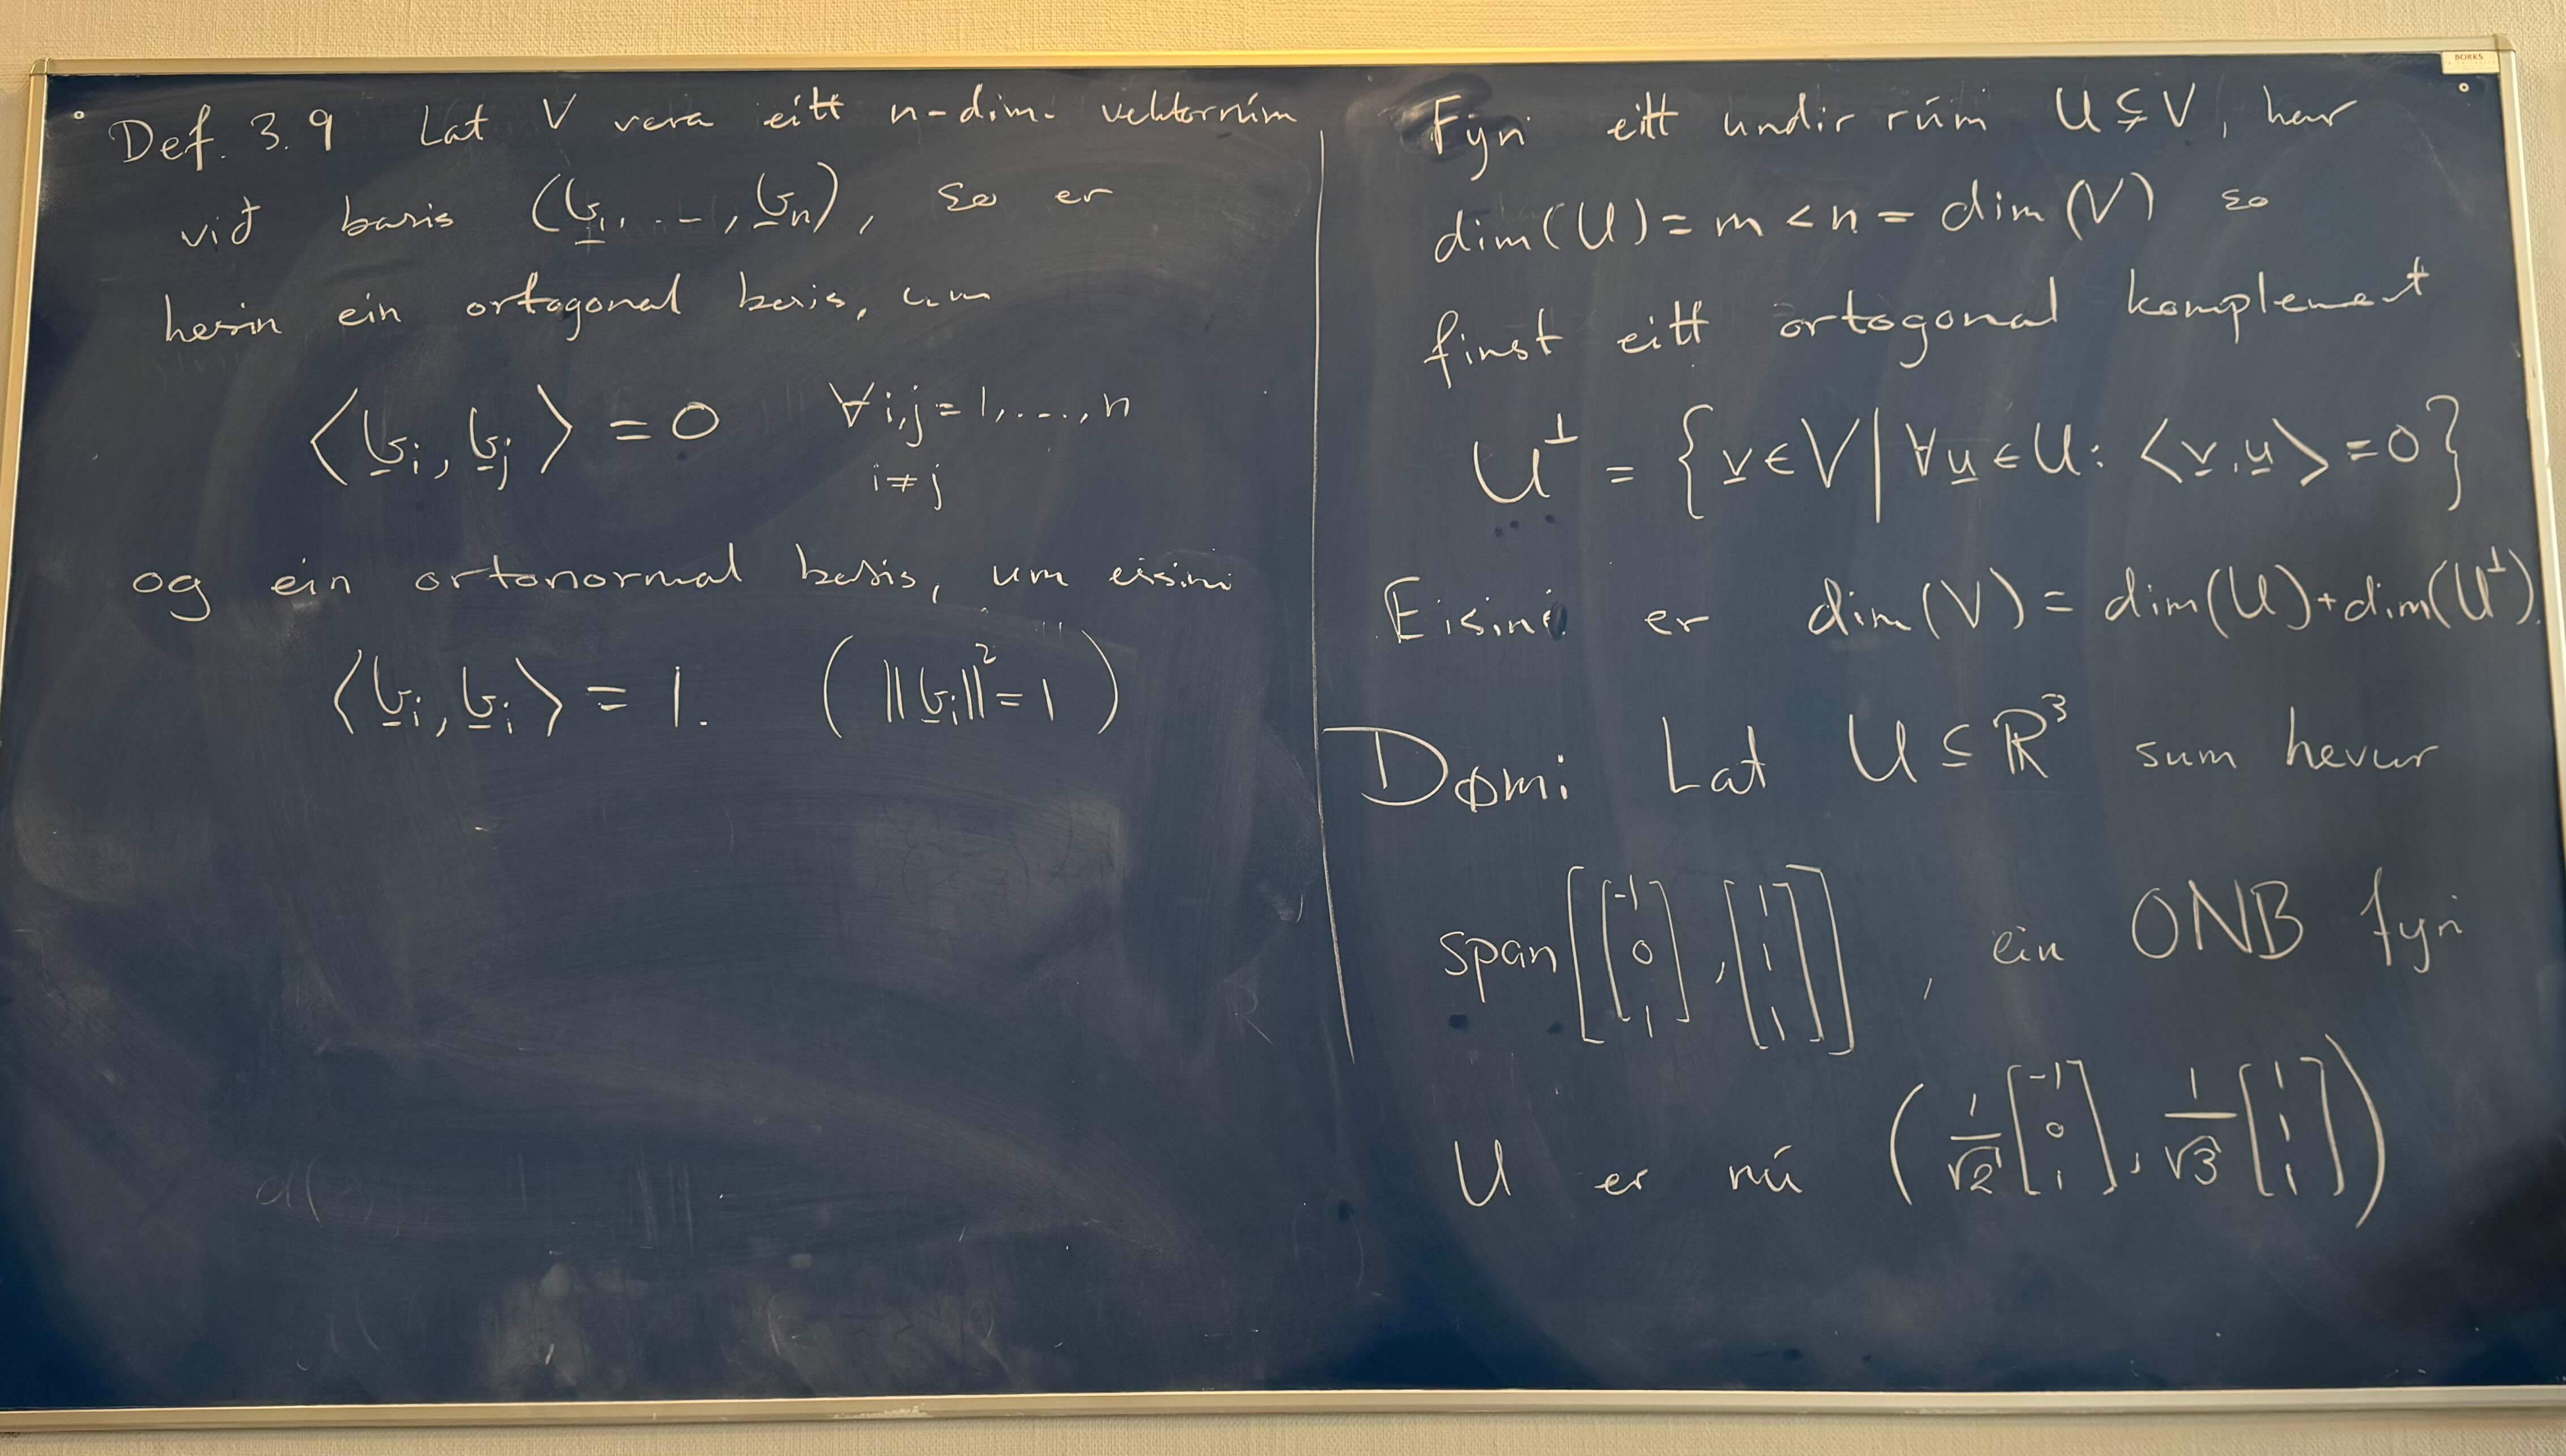 Def. 3.9 Lat V vera eitt n-dim. vektorrúm
við basis (b₁, ..., bₙ), so er
hesin ein ortogonal basis, um
⟨bᵢ, bⱼ⟩ = 0 ∀i,j = 1, ..., n
i ≠ j
og ein ortonormal basis, um eisini
⟨bᵢ, bᵢ⟩ = 1. (||bᵢ||² = 1)
Fyri eitt undirrúm U ⊊ V, har
dim(U) = m < n = dim(V) so
finst eitt ortogonal komplement
U^⊥ = {v ∈ V | ∀u ∈ U: ⟨v, u⟩ = 0}
Eisini er dim(V) = dim(U) + dim(U^⊥).
Dømi Lat U ⊆ ℝ³ sum hevur
span[[-1 0 1], [1 1 1]], ein ONB fyri
U er nú (1/√2 [-1 0 1], 1/√3 [1 1 1])
BORKS